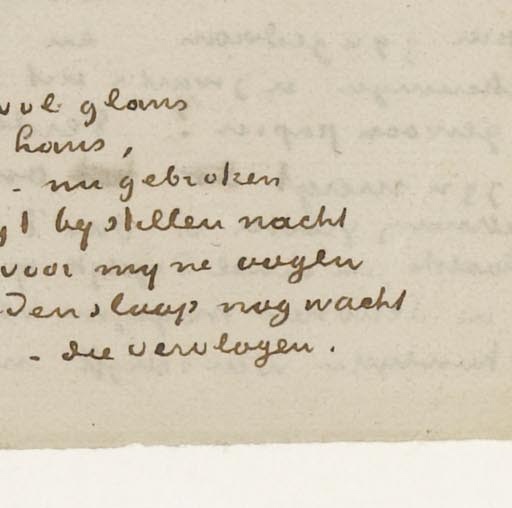 vol glans
hans,
- nu gebroken
by stillen nacht
voor myne oogen
den slaap nog wacht
- die vervlogen.